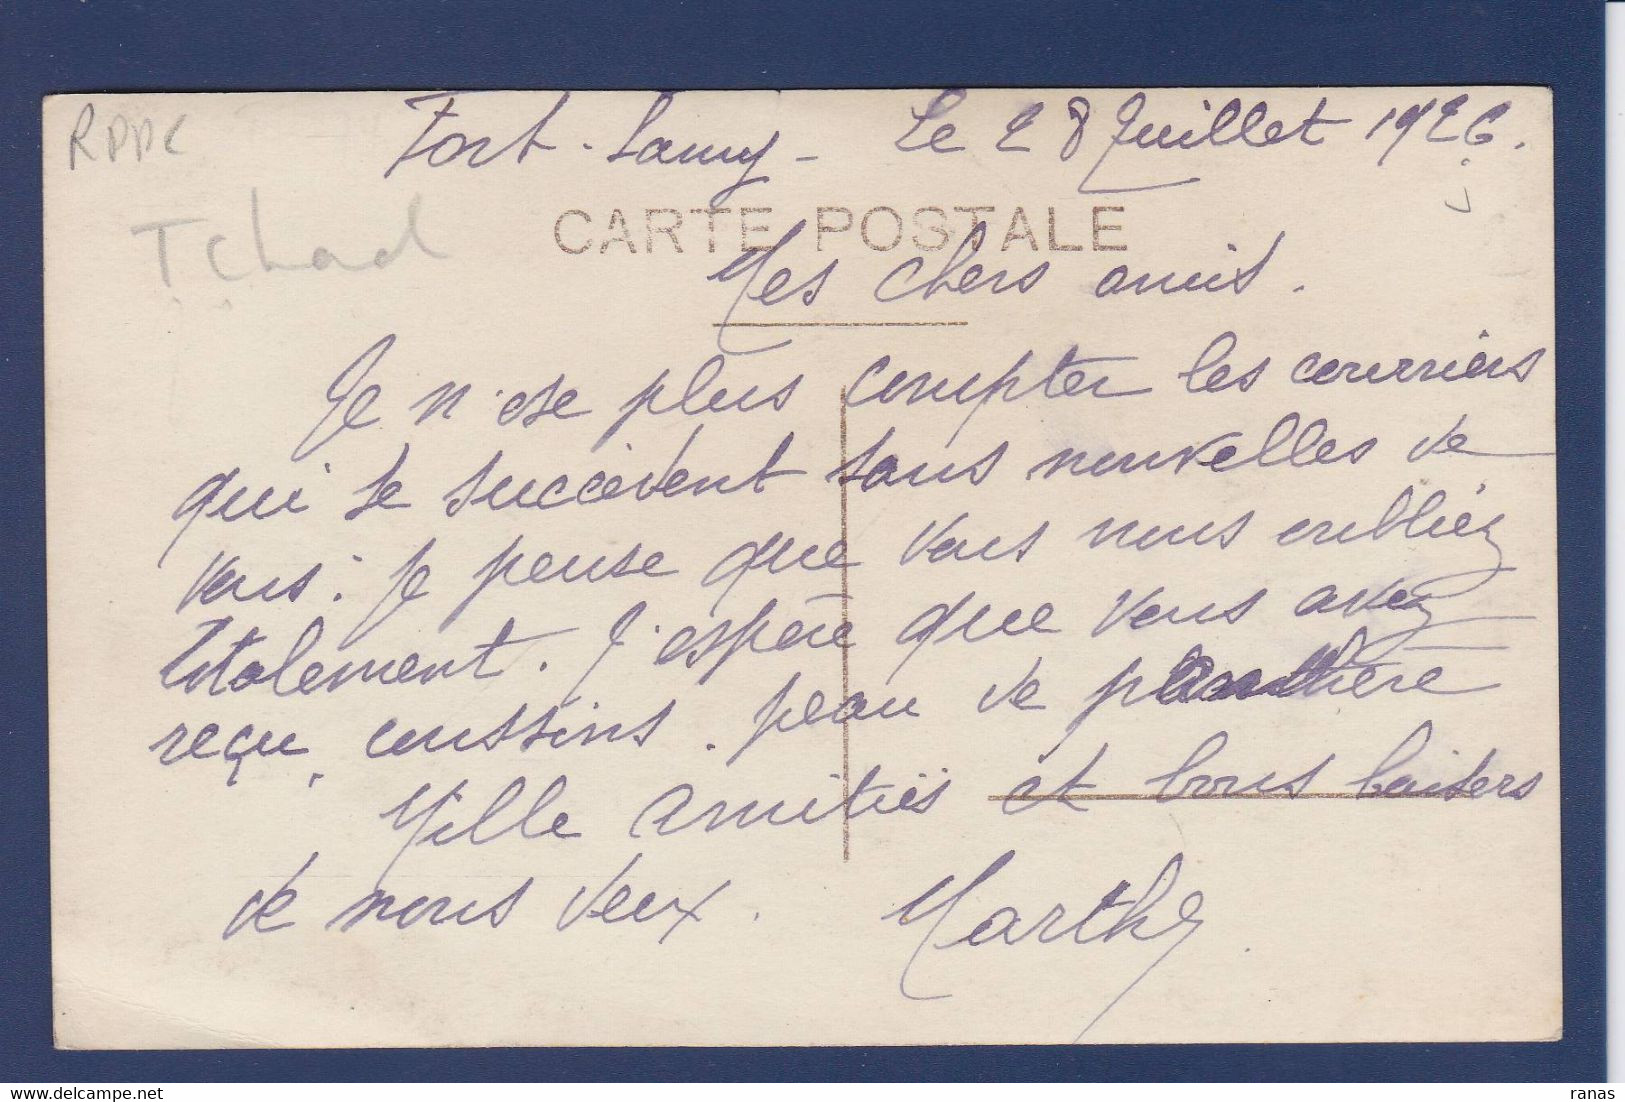 RPPC
Tchad
Fort-Lamy - Le 28 Juillet 1926.
CARTE POSTALE
Mes chers amis.
Je n'ose plus compter les courriers
qui se succèdent sans nouvelles de
vous. je pense que vous nous oubliez
totalement. J'espère que vous avez
reçu coussins. peau de panthère
Mille amitiés et bons baisers
de nous deux. Marthe
delcampe.net
ranas